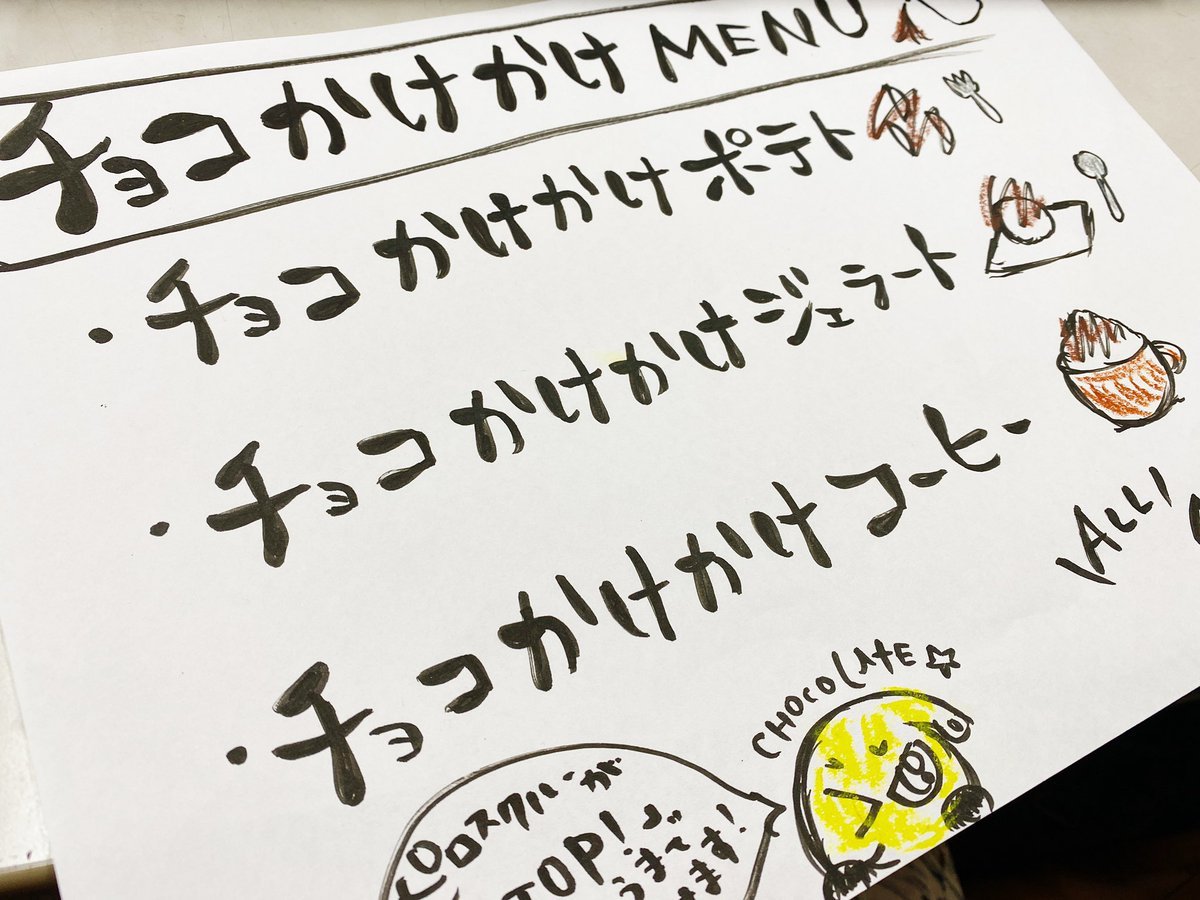 チョコかけかけMENU
・チョコかけかけポテト
・チョコかけかけジェラート
・チョコかけかけコーヒー
ALL
CHOCOLATE☆
ピロスクルーが
TOP!
うまで
ます!